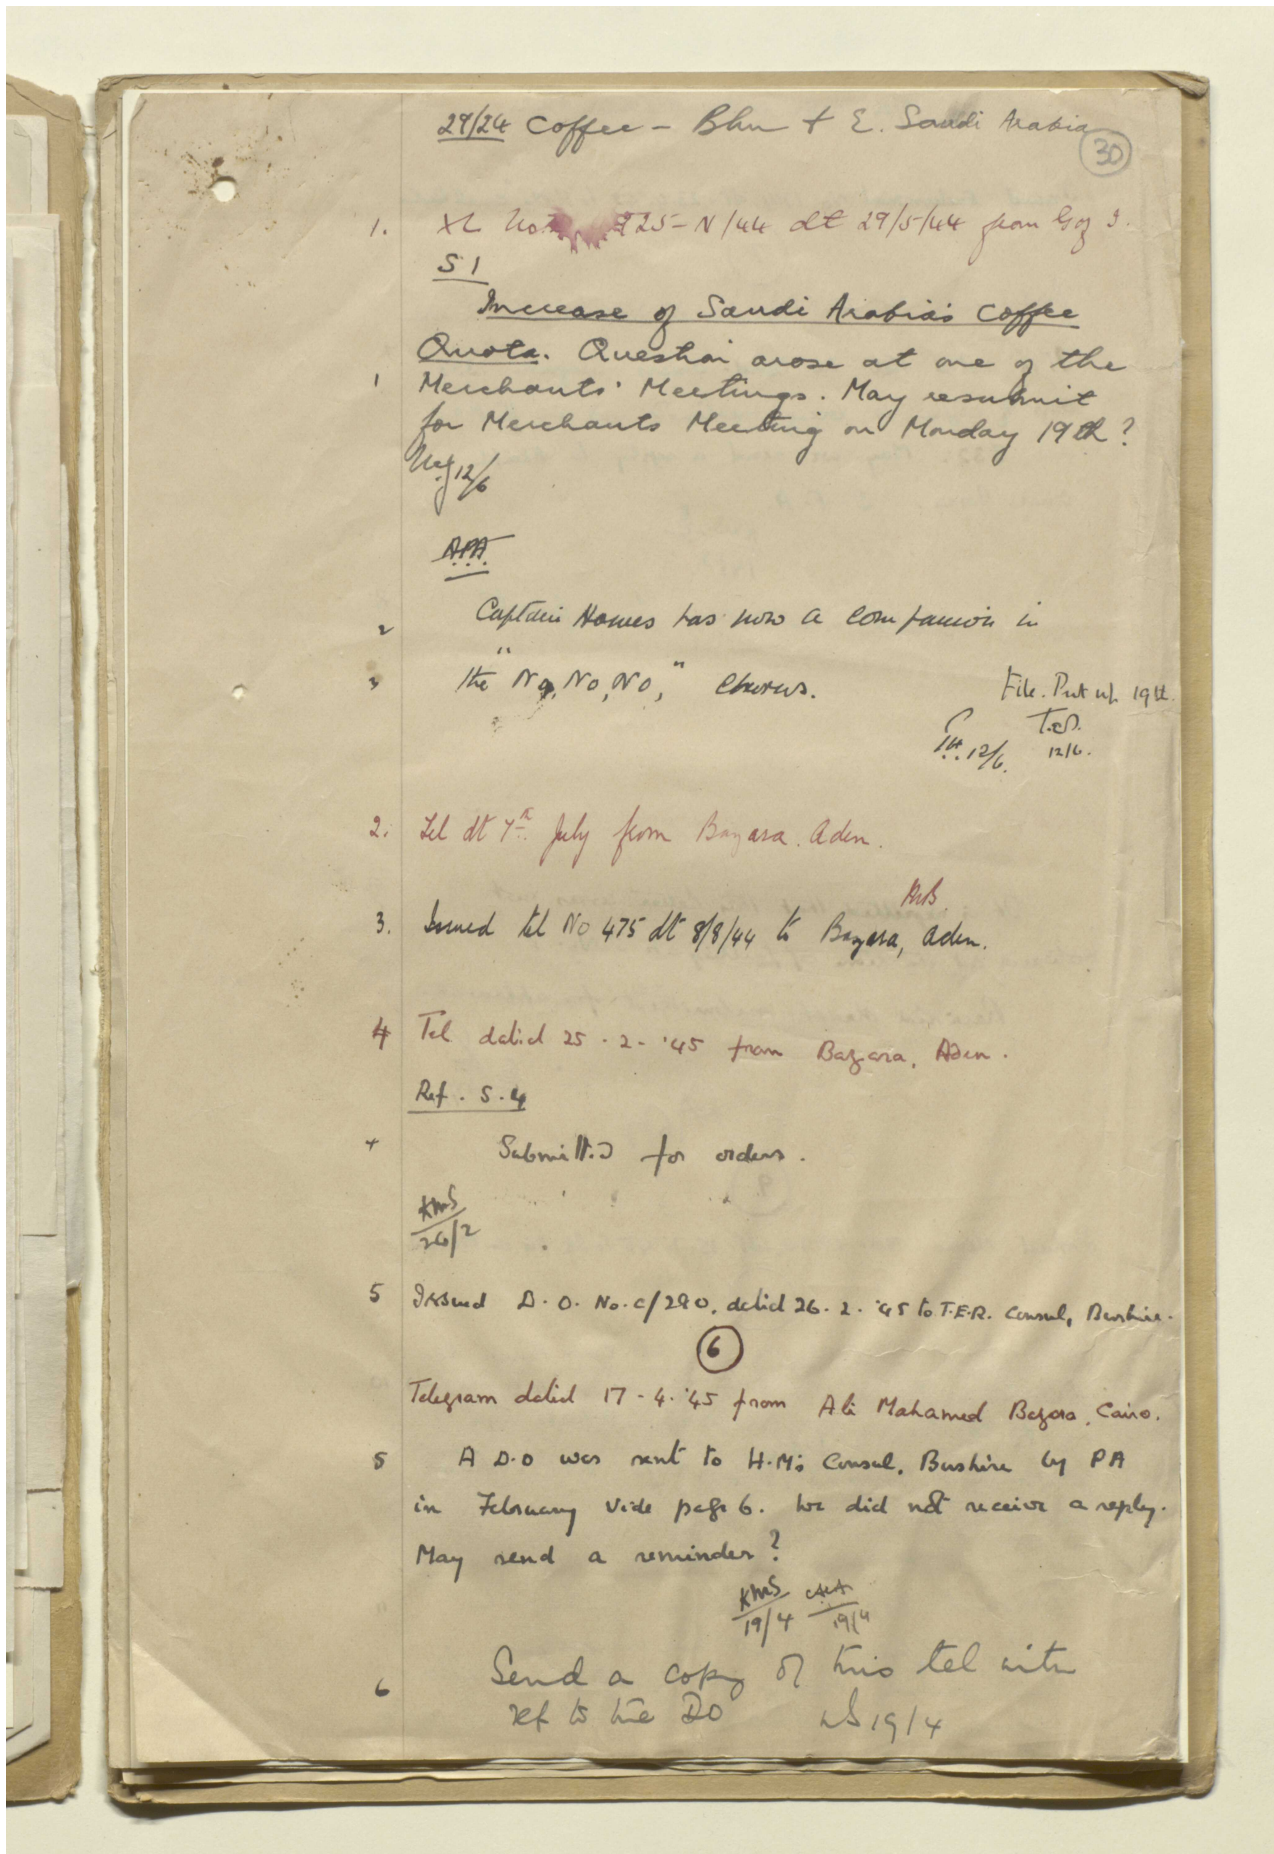 29/24 Coffee - Bhn + E. Saudi Arabia
30
1. XL No 25-N/44 dt 29/5/44 from G of I.
S 1
Increase of Saudi Arabia's Coffee
Quota. Question arose at one of the
1 Merchants' Meetings. May resubmit
for Merchants Meeting on Monday 19th?
12/6
A.P.A.
2 Captain Howes has now a companion in
3 the "No, No, No," Chorus.
File. Put up 19th.
T.
12/6. 12/6.
2. Tel dt 7th July from Bazara. Aden.
3. Issued tel No 475 dt 8/8/44 to Bazara, Aden.
4 Tel dated 25-2-'45 from Bazara, Aden.
Ref. S.4
4 Submitted for orders.
KMS
26/2
5 Issued D.O. No. C/290, dated 26.2.'45 to T.E.R. Consul, Bushire.
6
Telegram dated 17-4-'45 from Ali Mahamed Bazara, Cairo.
5 A D.O was sent to H.M's Consul, Bushire by PA
in February vide page 6. We did not receive a reply.
May send a reminder?
KMS
19/4 19/4
6 Send a copy of this tel with
ref to the DO 19/4